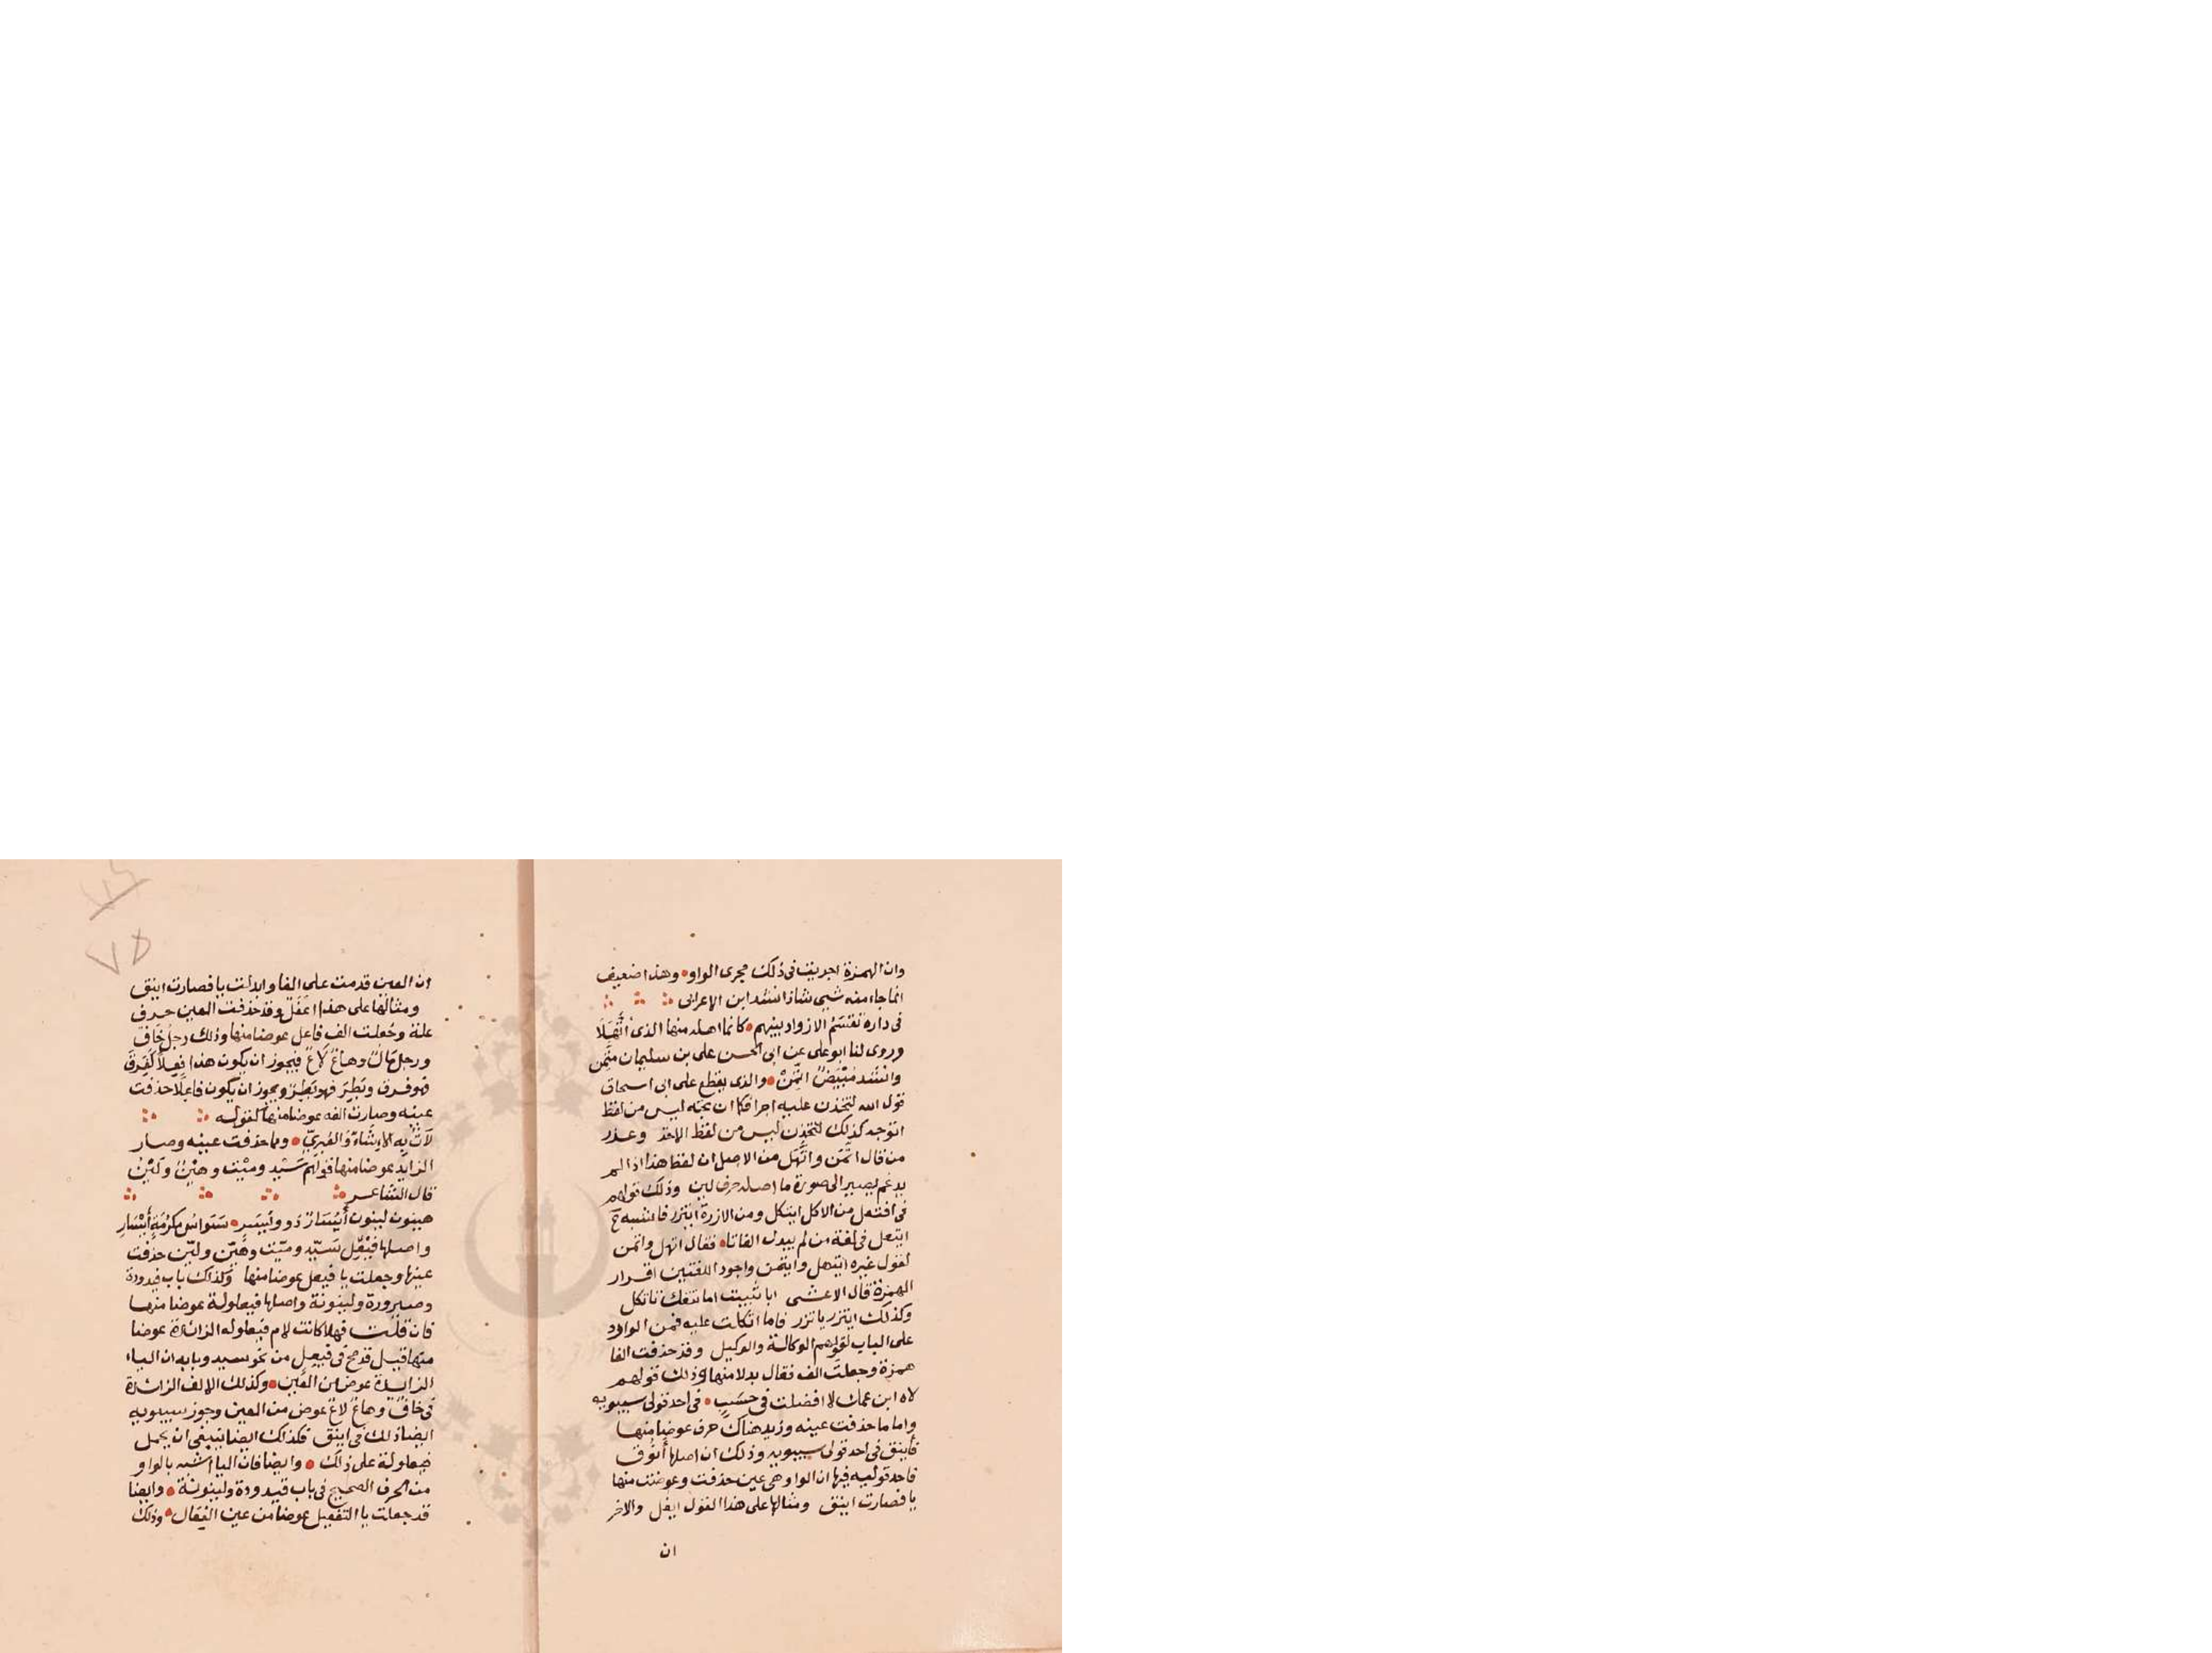 وان الهمزة اجريت فى ذلك مجرى الواو وهذا ضعيف
انما جاء منه شىء شاذ انشد ابن الاعرابى
فى داره تقسم الازواد بينهم كانما اهله منها الذى اتَّهَلَا
وروى لنا ابو على عن ابى الحسن على بن سليمان متَّمن
وانشد مُبْيَضُّ اتَّمَنْ والذى يقطع على ابى اسحاق
قول الله لتخذت عليه اجرا فكما ان تجه ليس من لفظ
اتوجه كذلك لتخذت ليس من لفظ الاخذ وعذر
من قال اتمن واتهل من الاصل ان لفظ هذا اذا لم
يدغم يصير الى صورة ما اصله حرف لين وذلك قولهم
فى افتعل من الاكل ايتكل ومن الازرة ايتزر فاشبه ح
ايتعل فى لغة من لم يبدل الفا تا فقال اتهل واتمن
لقول غيره ايتهل وايتمن واجود اللغتين اقرار
الهمزة قال الاعشى ابا ثبيت اما تنفك تاتكل
وكذلك ايتزر ياتزر فاما اتكلت عليه فمن الواو
على الباب لقولهم الوكالة والوكيل وقد حذفت الفا
همزة وجعلت الف فعال بدلا منها وذلك قولهم
لاه ابن عمك لا افضلت فى حسب فى احد قولى سيبويه
واما ما حذفت عينه وزيد هناك حرف عوضا منها
فاينق فى احد قولى سيبويه وذلك ان اصلها أنوُق
فاحد قوليه فيها ان الواو هى عين حذفت وعوضت منها
يا فصارت اينق ومثالها على هذا القول ايفل والاخر
ان
٧٥
ان العين قدمت على الفا وابدلت يا فصارت اينق
ومثالها على هذا اعفل وقد حذفت العين حرف
علة وجعلت الف فاعل عوضا منها وذلك رجل خاف
ورجل مال وهاع لاع فيجوز ان يكون هذا فعلا كفرق
فهو فرق وبطر فهو بطر ويجوز ان يكون فاعلا حذفت
عينه وصارت الفه عوضا منها لقوله
لاث به الاشاء والعبرى ومما حذفت عينه وصار
الزايد عوضا منها قولهم سَيْد وميْت وهيْن وليْن
قال الشاعر
هينون لينون أيسار ذوو يسر سواس مكرمة أيسار
واصلها فيعل سيّد وميّت وهيّن وليّن حذفت
عينها وجعلت يا فيعل عوضا منها وكذلك باب قيدودة
وصيرورة وكينونة واصلها فيعلولة عوضا منها
فان قلت فهلا كانت لام فيعلوله الزائدة عوضا
منها قيل قد صح فى فيعل من نحو سيد وبابه ان الياء
الزايدة عوض من العين وكذلك الالف الزائدة
فى خاف وهاع لاع عوض من العين وجوز سيبويه
ايضا ذلك فى اينق فكذلك ايضا ينبغى ان يحمل
فيعلولة على ذلك وايضا فان اليا اشبه بالواو
من الحرف الصحيح فى باب قيدودة وكينونة وايضا
قد جعلت يا التفعيل عوضا من عين الفعال وذلك